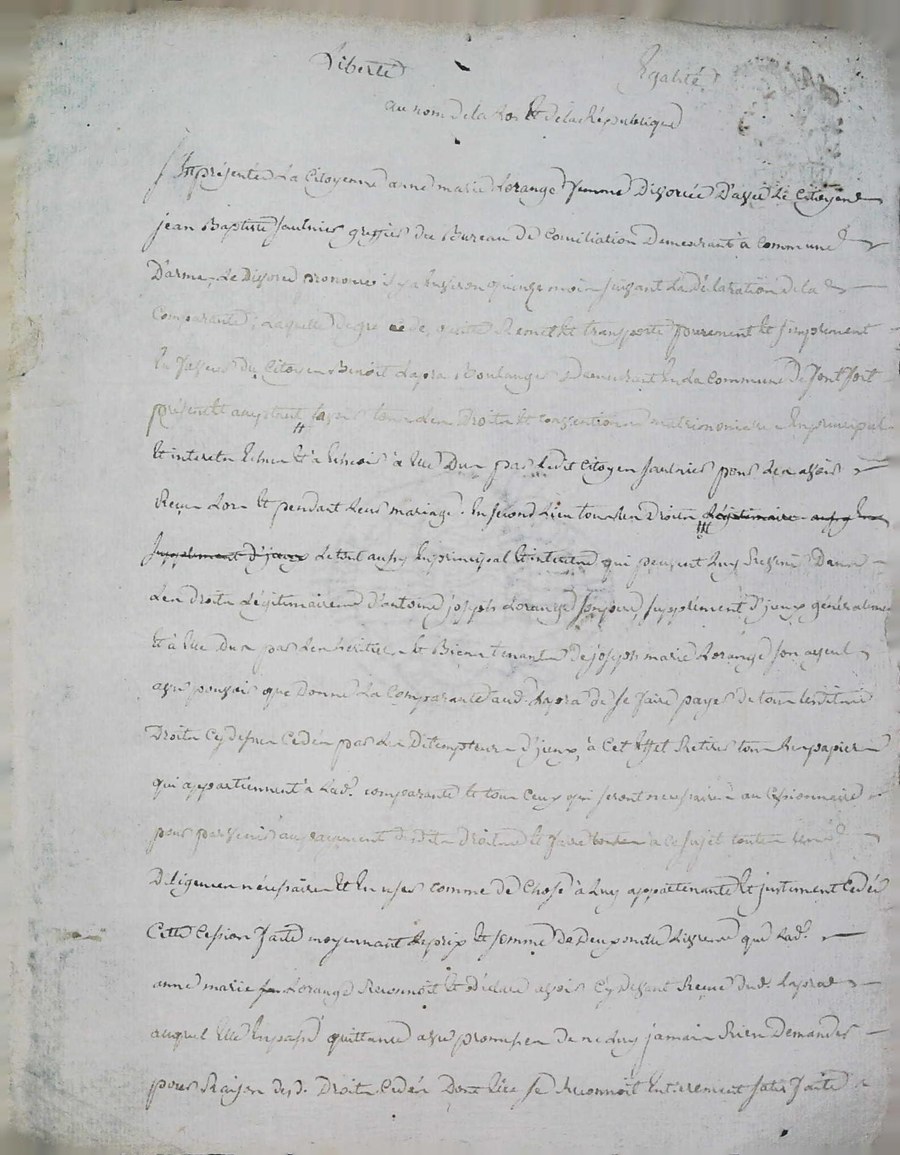 Liberté Egalité
au nom de la Loi et de la République
S'est présentée La Citoyenne anne marie Lorange femme Divorcée D'avec Le Citoyen
jean Baptiste Saulnier greffier du Bureau de Conciliation Demeurant à Commune
D'arme, Le Divorce prononcé il y a Environ quinze mois suivant La Déclaration de la
Comparante; Laquelle de gré cede, quitte Remet et transporte purement et simplement
En faveur du Citoyen Benoit Lapra Boulanger Demeurant En la Commune de
présent et acceptant tous Les Droits et conventions matrimoniaux En principal
Et interets Echus Et à Echeoir à Elle Dus par Ledit Citoyen Saulnier pour Les avoir
Reçus Lors Et pendant Leur mariage. En second Lieu tous Les Droits Légitimaires aussy En
supplement d'jceux Le tout aussy En principal Et interets qui peuvent Luy Revenir Dans
Les Droits Légitimaires d'antoine joseph Lorange son pere, supplément d'jceux généralement
Et à Elle Dus par Les héritiers Et Biens tenants de joseph marie Lorange son ayeul
avec pouvoir que Donne La Comparante aud. Lapra de se faire payer de tous Lesdits
Droits Cy dessus Cedés par Les Détempteurs d'jceux, à Cet Effet Retirer tous Les papiers
qui appartiennent à Lad. comparante Et tous Ceux qui seront necessaires au Cessionnaire
pour parvenir au payement desdits Droits Et faire à ce sujet toutes Les
Diligences nécessaires Et En user comme de Chose à Luy appartenante Et justement Cedée
Cette Cession faite moyennant Le prix Et somme De Deux Livres que Lad.
anne marie Lorange Reconnoit Et déclare avoir Cy devant Reçue dud. Lapra
auquel Elle En passe quittance avec promesse de ne Luy jamais Rien Demander
pour Raison desd. Droits Cedés Dont Elle se Reconnoit Entierement satisfaite